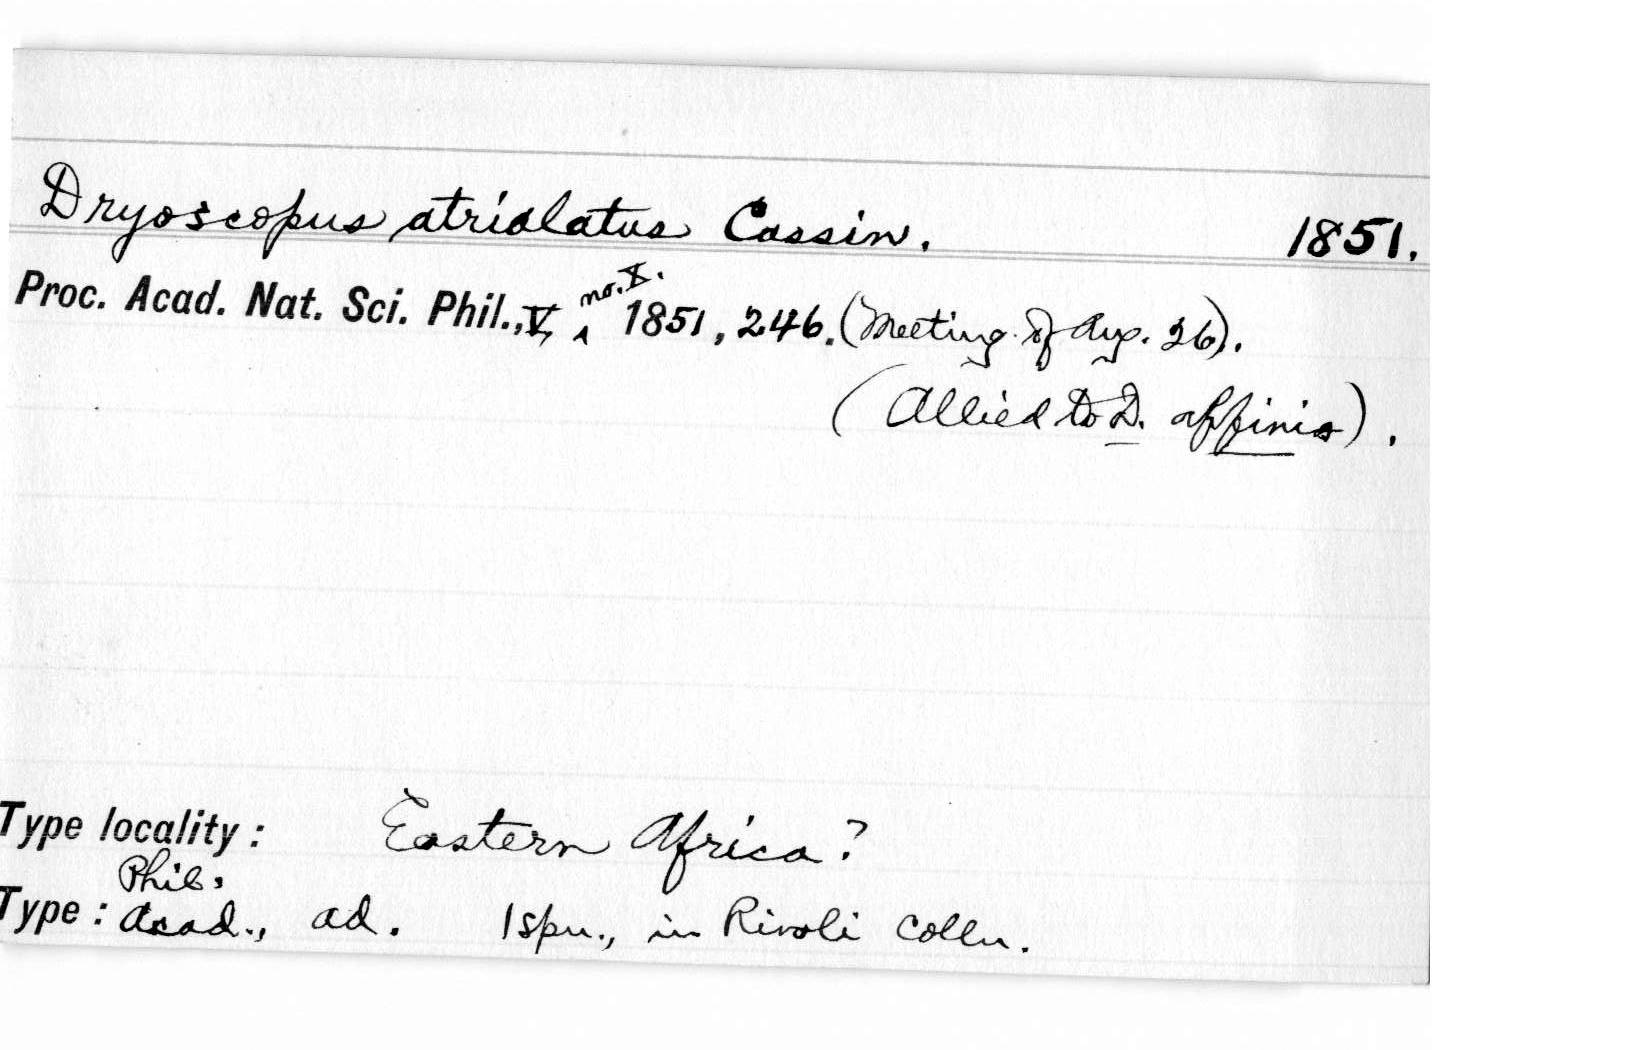 Dryoscopus atrialatus Cassin. 1851.
Proc. Acad. Nat. Sci. Phil., V, no. X. 1851, 246. (Meeting of Aug. 26).
(Allied to D. affinis).
Type locality: Eastern Africa?
Phil.
Type: Acad., ad. 1 spn., in Rivoli Colln.